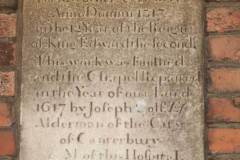 Anno Domini 1317
in the 12 Year of the Reign
of King Edward the Second
This work was finished
and the Chapell repaired
in the Year of our Lord
1617 by Joseph
Alderman of the City
of Canterbury
of this Hospital